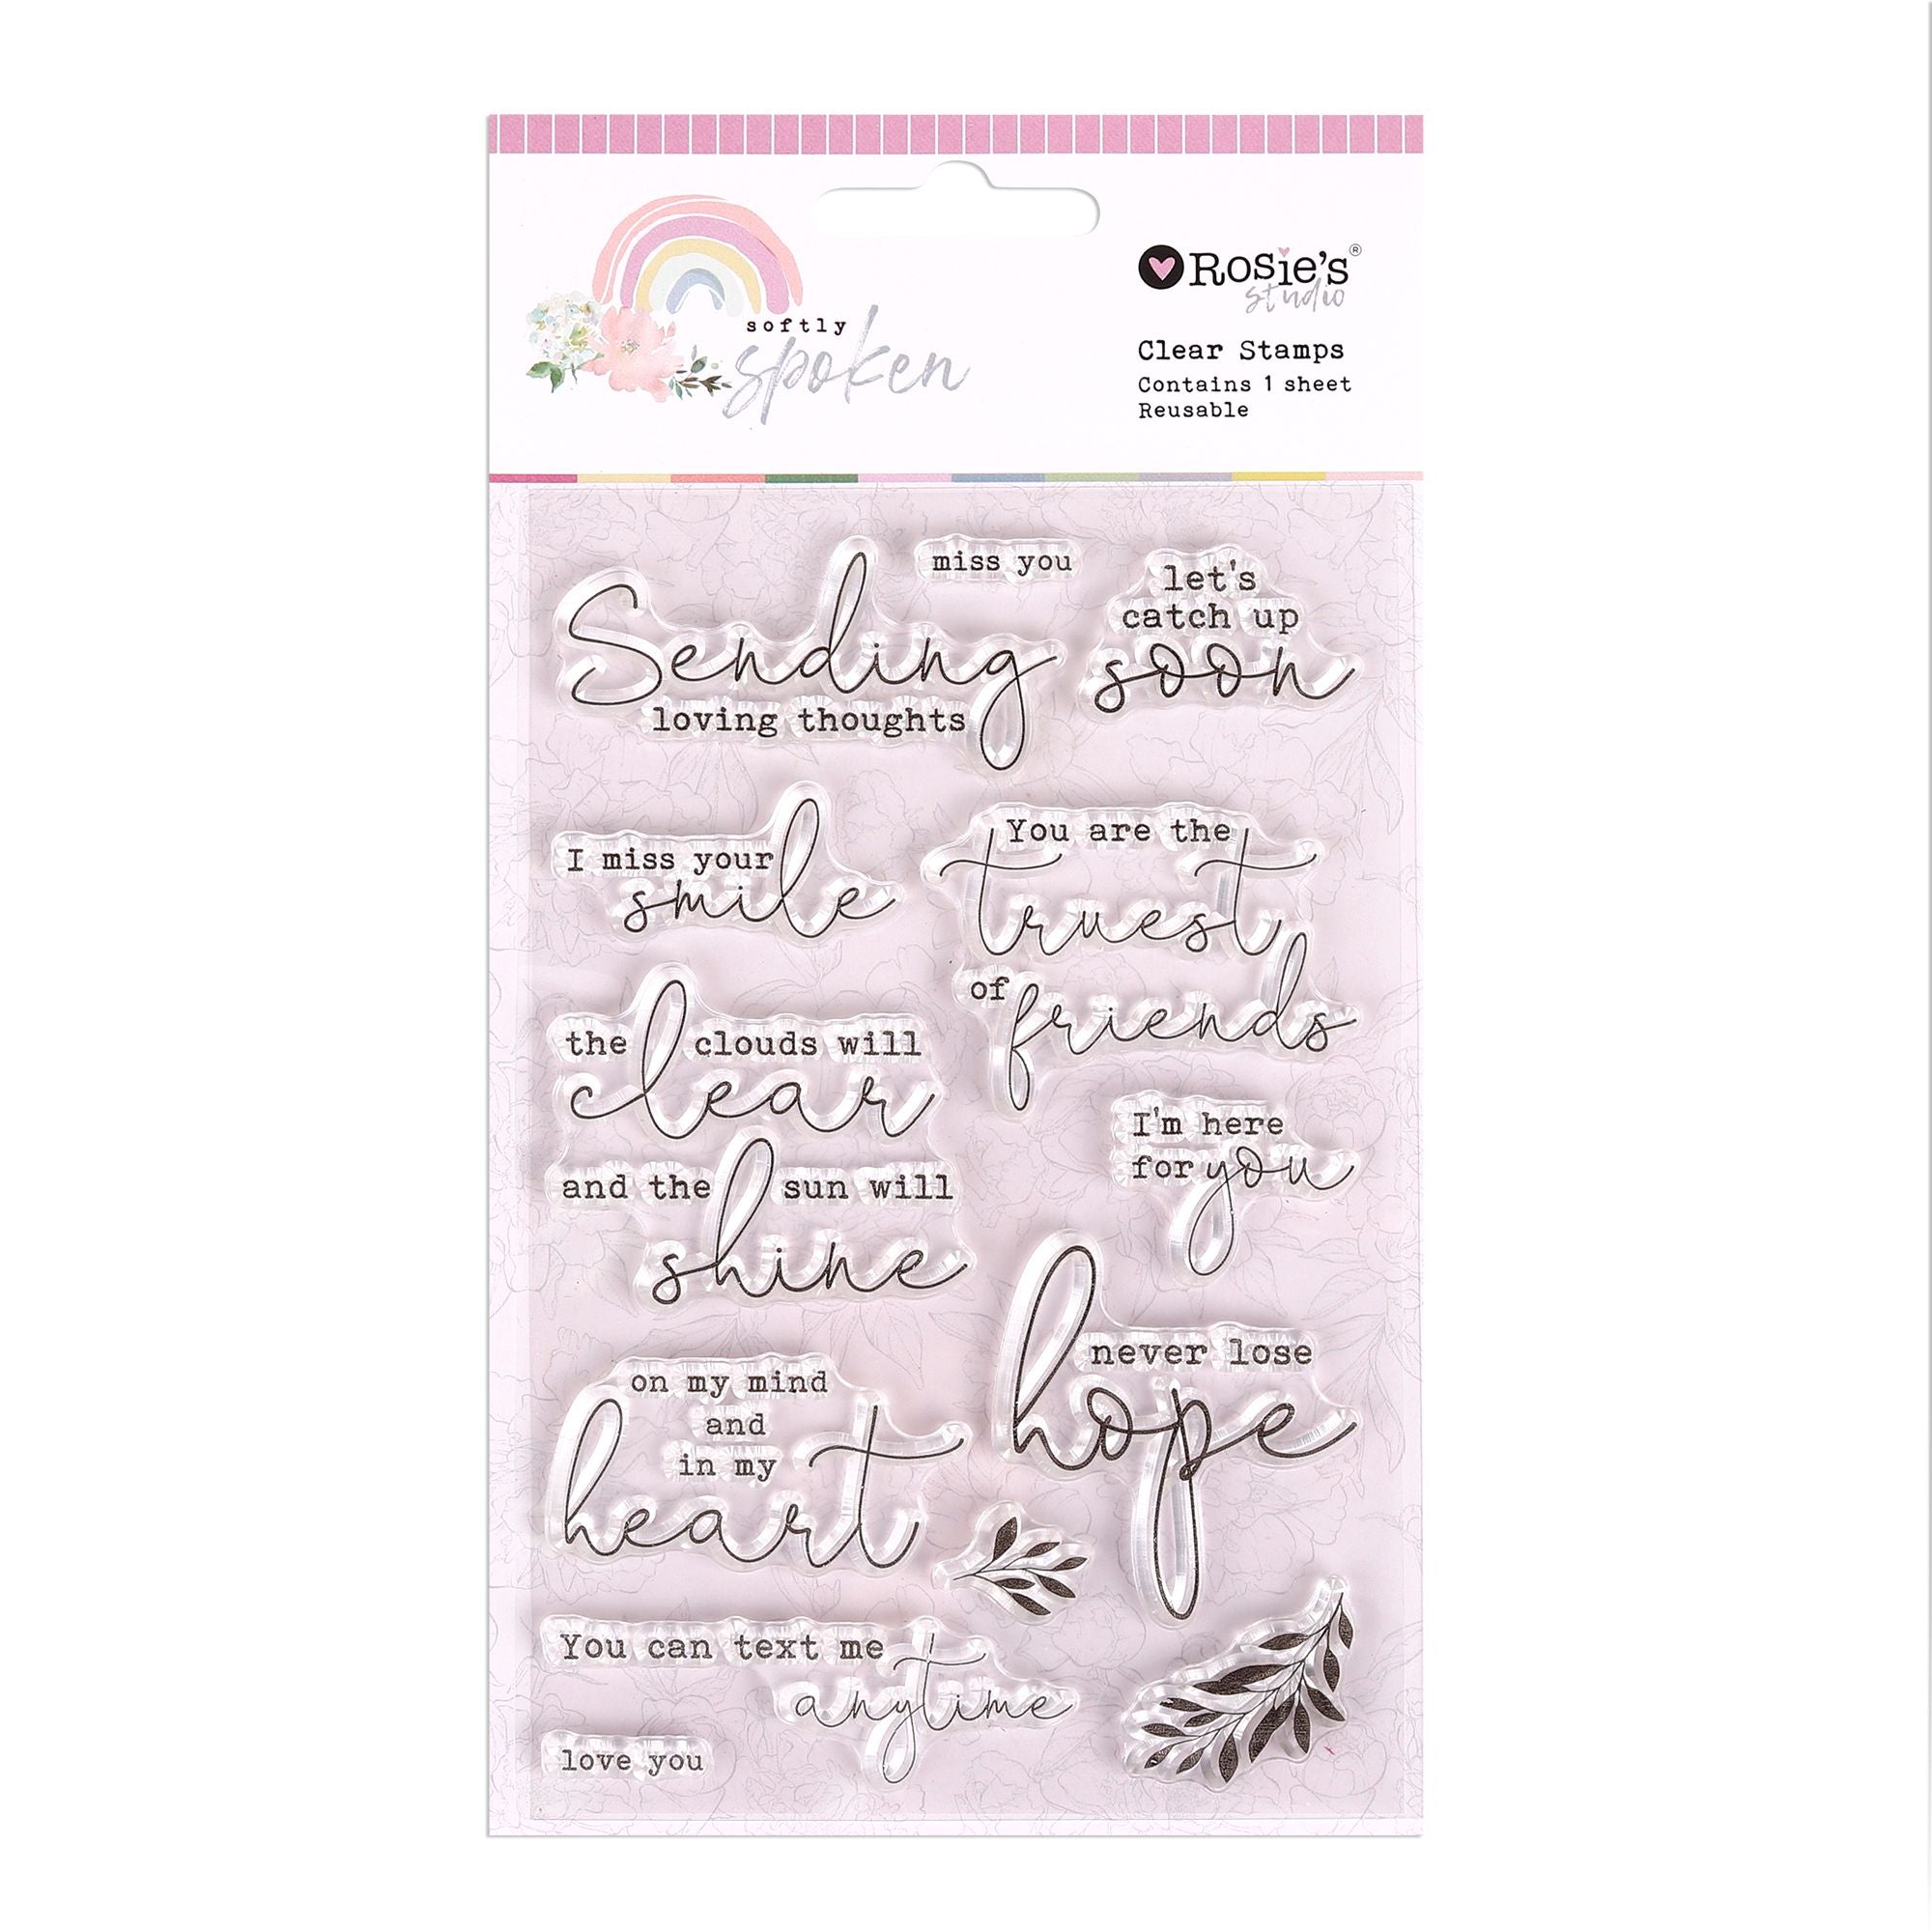 softly
spoken
Rosie's®
studio
Clear Stamps
Contains 1 sheet
Reusable
miss you
Sending
loving thoughts
let's
catch up
soon
I miss your
smile
You are the
truest
of friends
the clouds will
clear
and the sun will
shine
I'm here
for you
never lose
hope
on my mind
and
in my
heart
You can text me
anytime
love you